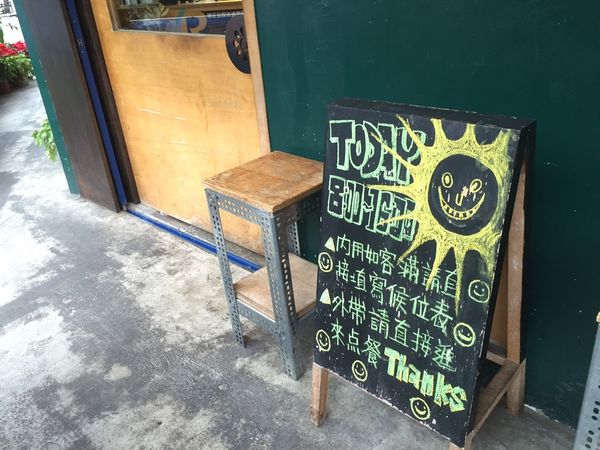 TODAY
▲內用如客滿請直
接填寫候位表
▲外帶請直接進
來点餐Thanks